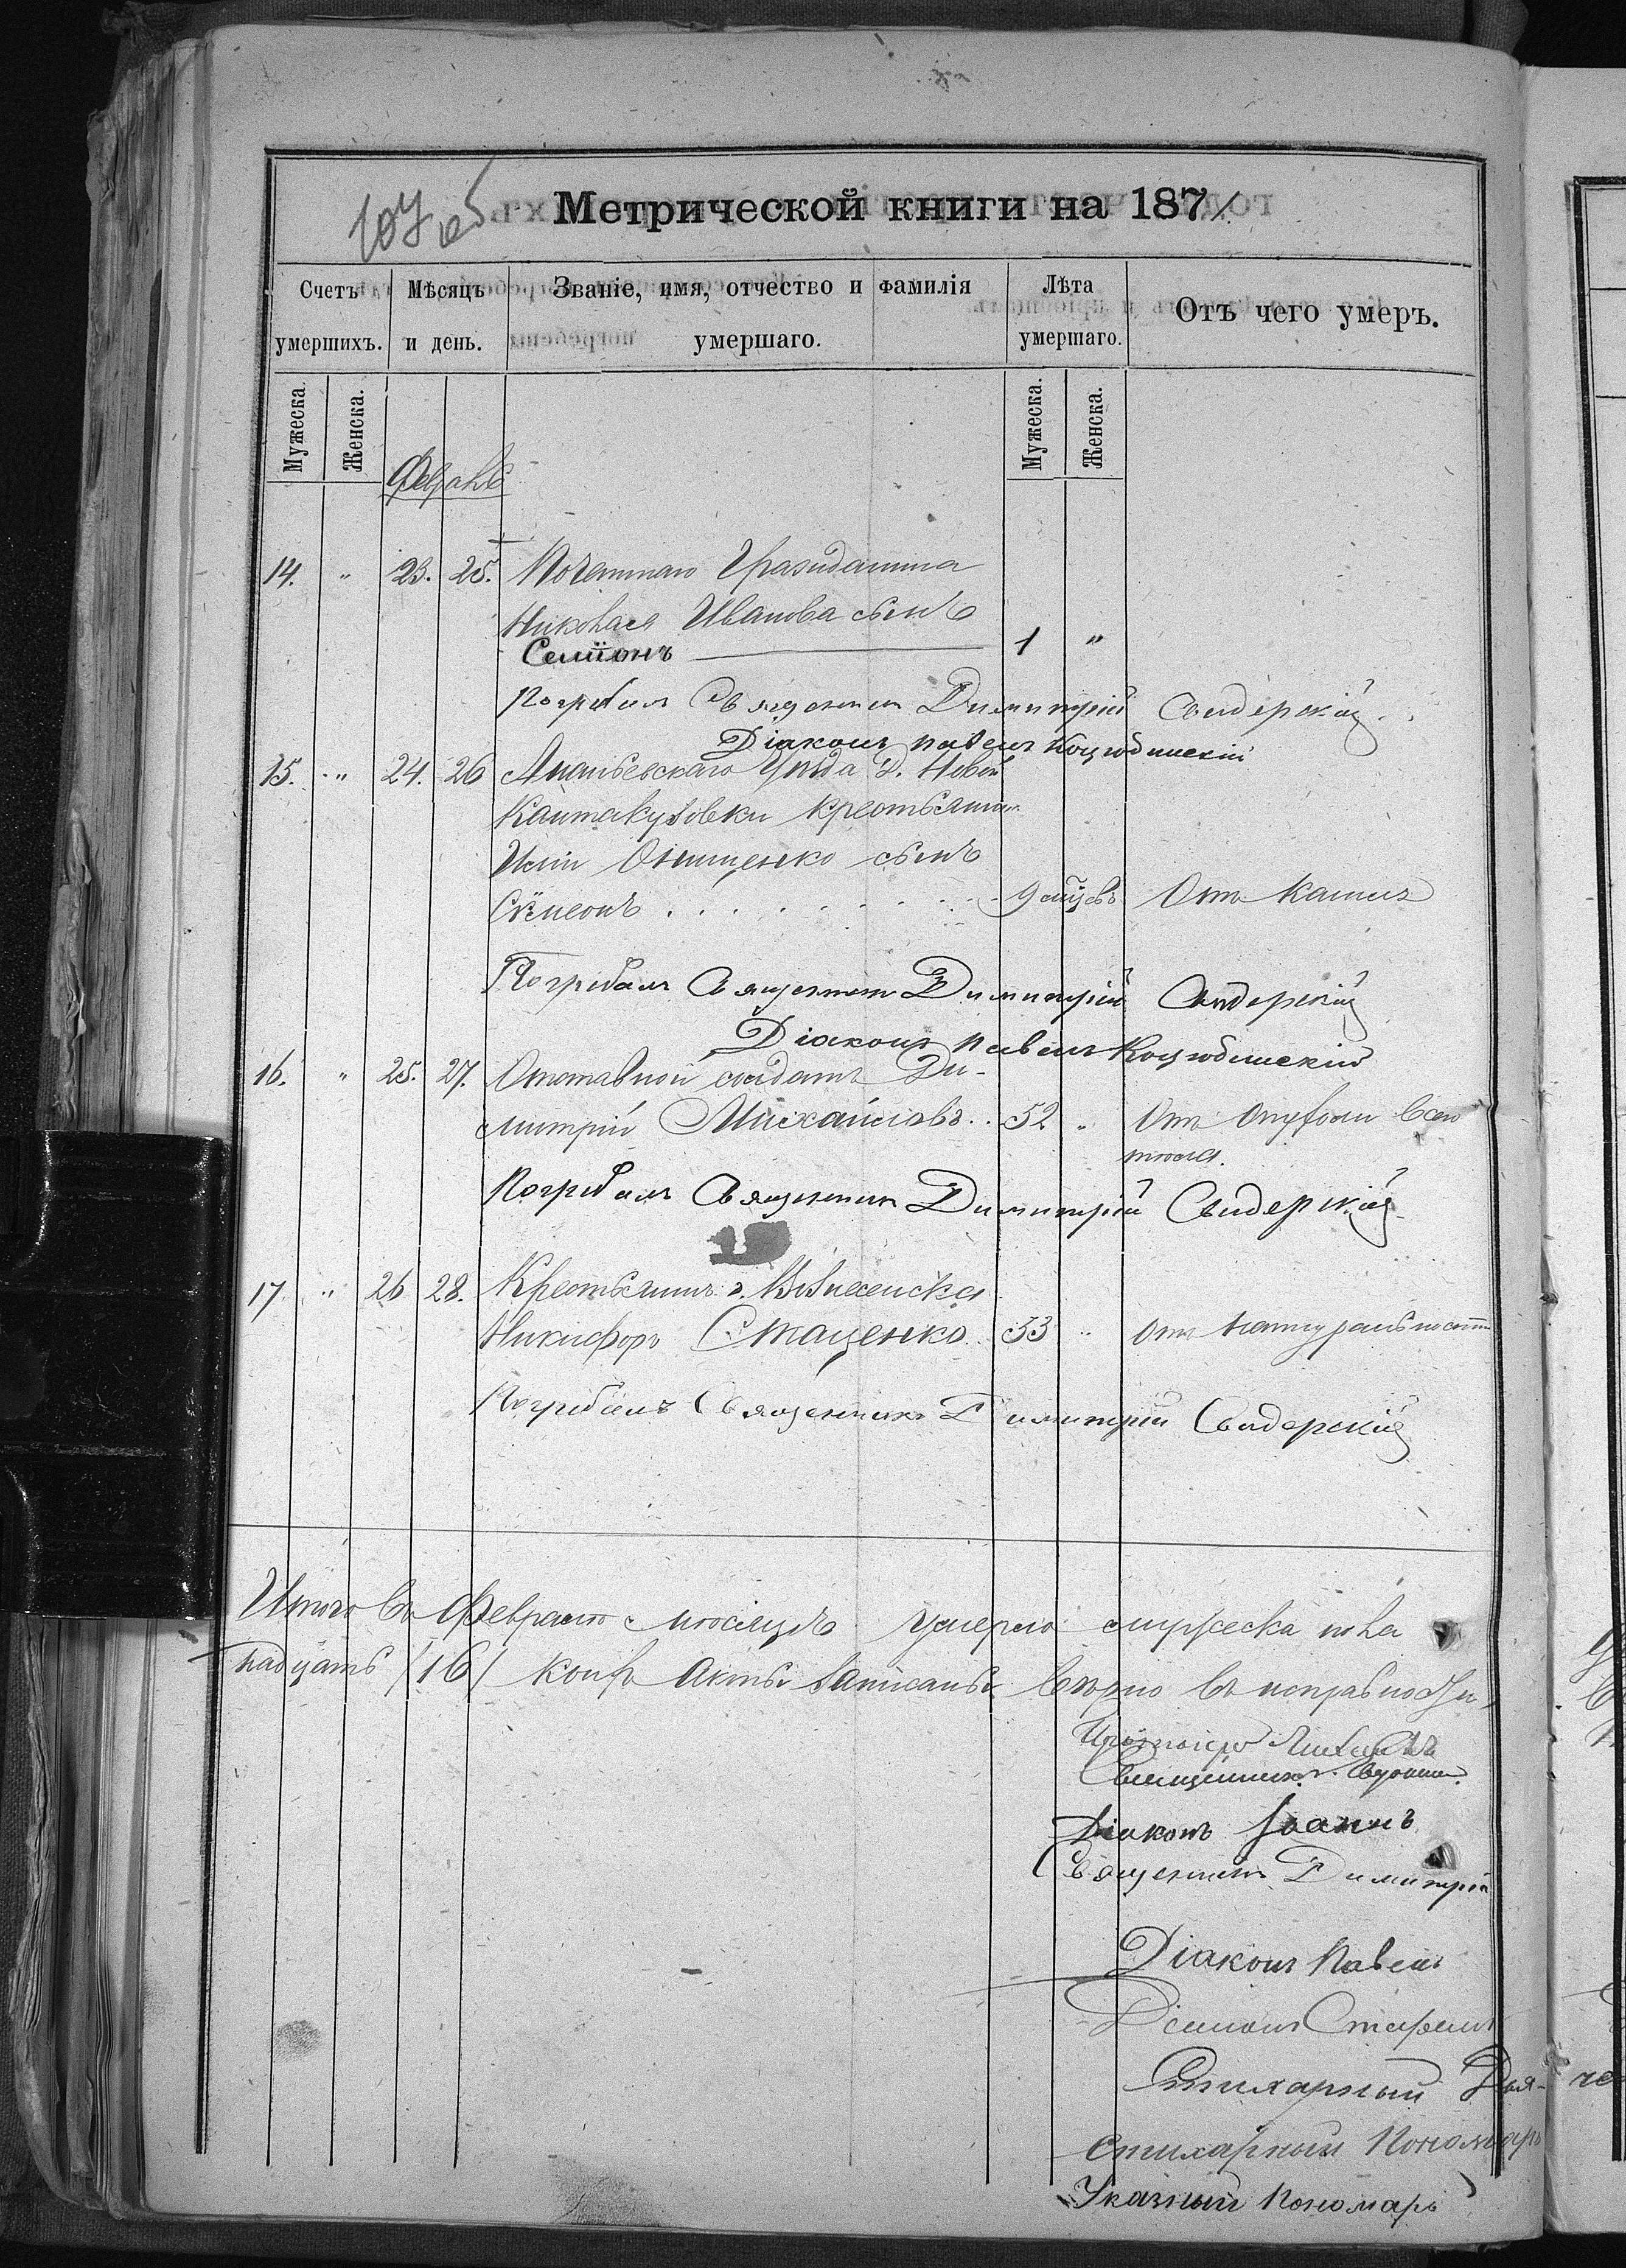 Метрической книги на 1871
Счетъ умершихъ.
Мѣсяцъ и день.
Званіе, имя, отчество и фамилія умершаго.
Лѣта умершаго.
Отъ чего умеръ.
Мужеска.
Женска.
Мужеска.
Женска.
Февраль
14. " 23. 25. Почетнаго Гражданина
Николая Иванова сынъ
Симіонъ 1 "
Погребалъ Священникъ Димитрій Свидерскій
Діаконъ Павелъ Коцюбинскій
15. " 24. 26 Ананьевскаго Уѣзда Д. Новой
Кантакузовки крестьянина
Онищенко сынъ
Сѵмеонъ 9 мцевъ Отъ кашля
Погребалъ Священникъ Димитрій Свидерскій
Діаконъ Павелъ Коцюбинскій
16. " 25. 27. Отставной солдатъ Ди-
митрій Михайловъ 52 " Отъ опухоли всего
тѣла.
Погребалъ Священникъ Димитрій Свидерскій
17 " 26 28. Крестьянинъ г. Вознесенска
Никифоръ Стаценко 53 " отъ натуральности
Погребалъ Священникъ Димитрій Свидерскій
Итого въ Февралѣ мѣсяцѣ умерло мужеска пола
надцать (16) коихъ акты записаны вѣрно въ исправности
Протоіерей
Священникъ
Діаконъ Іоаннъ
Священникъ Димитрій
Діаконъ Павелъ
Діаконъ Стефанъ
Стихарный Дья-
Стихарный Пономарь
Указный Пономарь